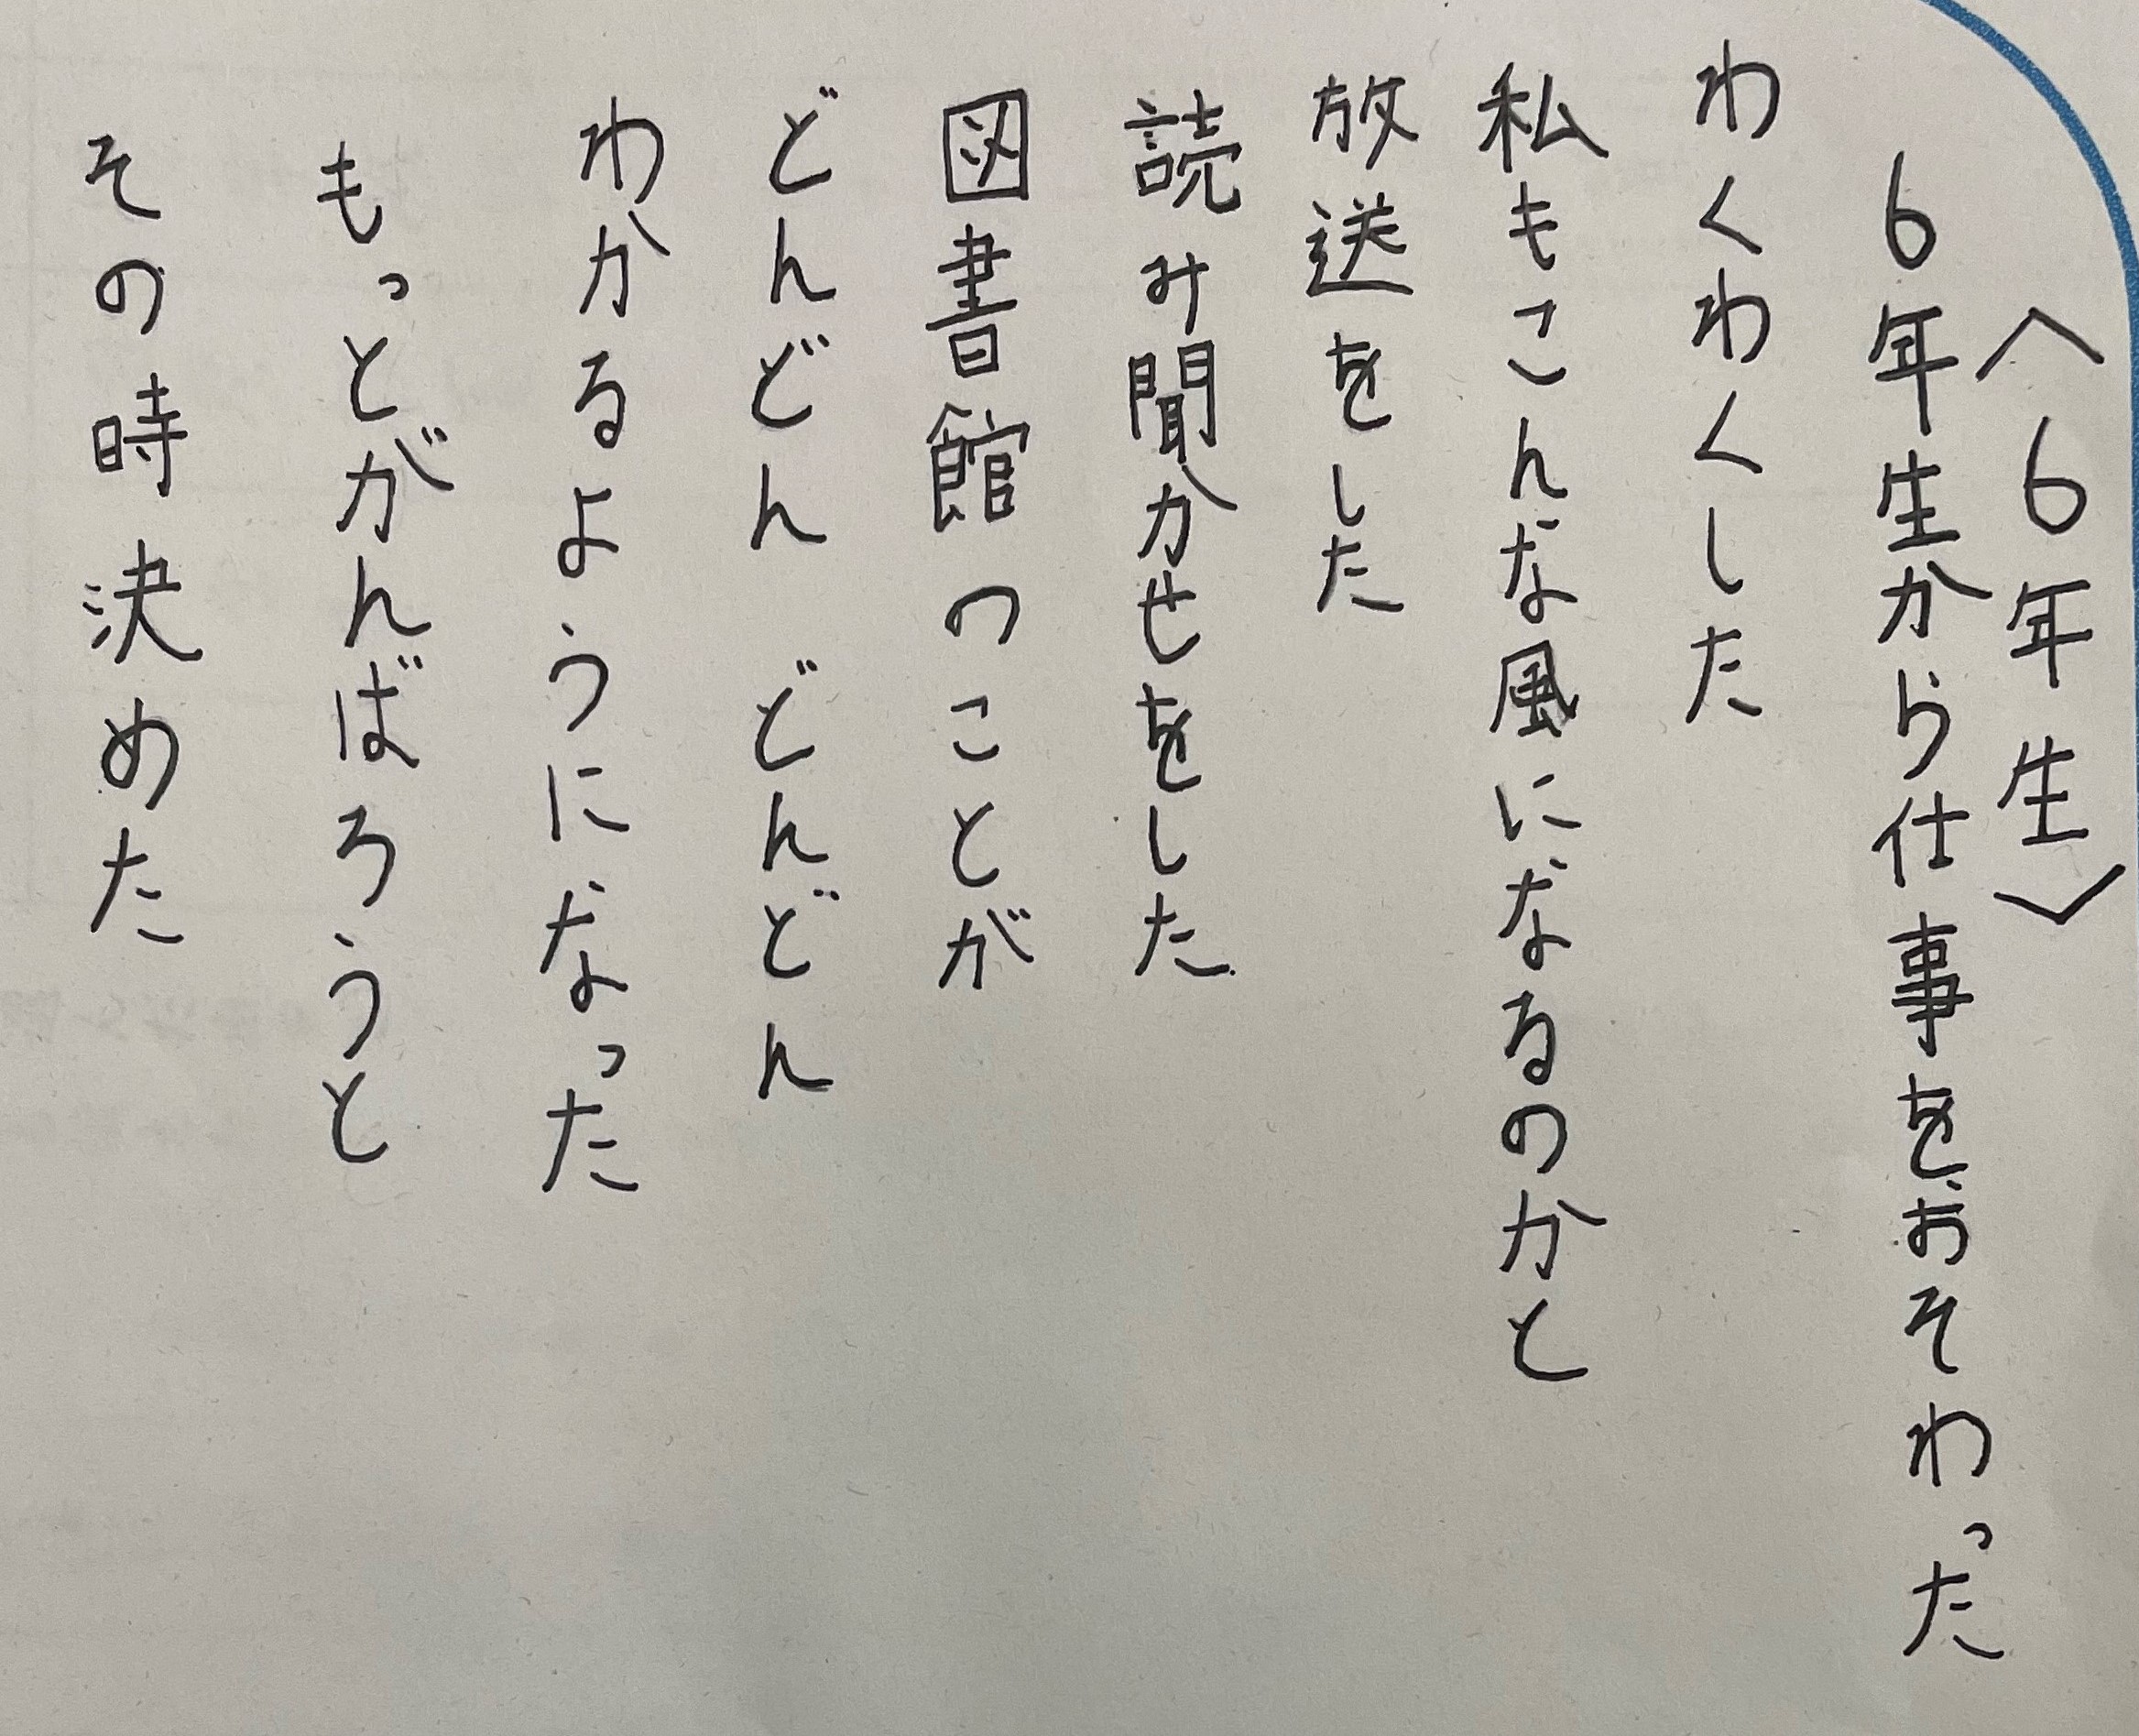 〈6年生〉
6年生から仕事をおそわった
わくわくした
私もこんな風になるのかと
放送をした
読み聞かせをした
図書館のことが
どんどん どんどん
わかるようになった
もっとがんばろうと
その時決めた